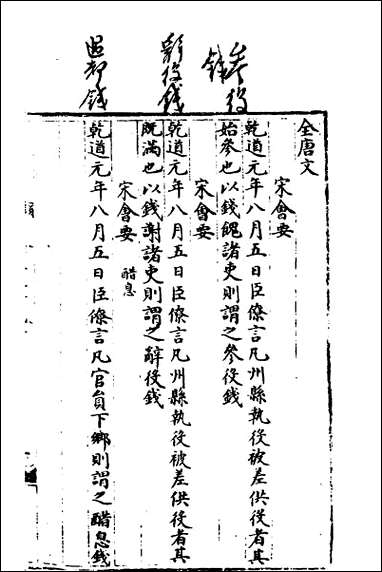 參役錢
辭役錢
全唐文
宋會要
乾道元年八月五日臣僚言凡州縣執役被差供役者其
始參也以錢餽諸吏則謂之參役錢
宋會要
乾道元年八月五日臣僚言凡州縣執役被差供役者其
既滿也以錢謝諸吏則謂之辭役錢
宋會要 醋息
乾道元年八月五日臣僚言凡官員下鄉則謂之醋息錢